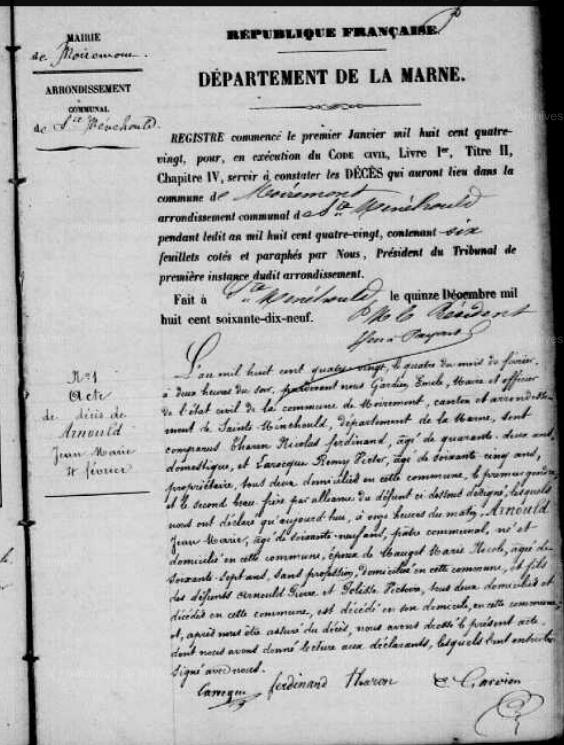 MAIRIE
de Moiremont.
ARRONDISSEMENT
COMMUNAL
de Ste Ménehould.
RÉPUBLIQUE FRANÇAISE.
DÉPARTEMENT DE LA MARNE.
REGISTRE commencé le premier Janvier mil huit cent quatre-
vingt, pour, en exécution du CODE CIVIL, Livre Ier, Titre II,
Chapitre IV, servir à constater les DÉCÈS qui auront lieu dans la
commune de Moiremont
arrondissement communal de Ste Ménehould
pendant ledit an mil huit cent quatre-vingt, contenant six
feuillets cotés et paraphés par Nous, Président du Tribunal de
première instance dudit arrondissement.
Fait à Ste Ménehould, le quinze Décembre mil
huit cent soixante-dix-neuf. Le Président
No 1
Acte
de décès de
Arnould
Jean Marie
4 février
L'an mil huit cent quatre-vingt, le quatre du mois de février,
à deux heures du soir, pardevant nous Emile, Maire et officier
de l'état civil de la commune de Moiremont, canton et arrondisse-
ment de Sainte Ménehould, département de la Marne, sont
comparus Nicolas ferdinand, âgé de quarante-deux ans,
domestique, et Remy Victor, âgé de soixante cinq ans,
propriétaire, tous deux domiciliés en cette commune, le premier
et le second beau-frère par alliance du défunt ci dessous désigné, lesquels
nous ont déclaré qu'aujourd'hui, à onze heures du matin, Arnould
Jean Marie, âgé de soixante-neuf ans, pâtre communal, né et
domicilié en cette commune, époux de Marie Nicole, âgée de
soixante-sept ans, sans profession, domiciliée en cette commune, fils
des défunts Arnould Pierre et Victoire, tous deux domiciliés et
décédés en cette commune, est décédé en son domicile, en cette commune
et, après nous être assuré du décès, nous avons dressé le présent acte
dont nous avons donné lecture aux déclarants, lesquels l'ont ensuite
signé avec nous.
ferdinand